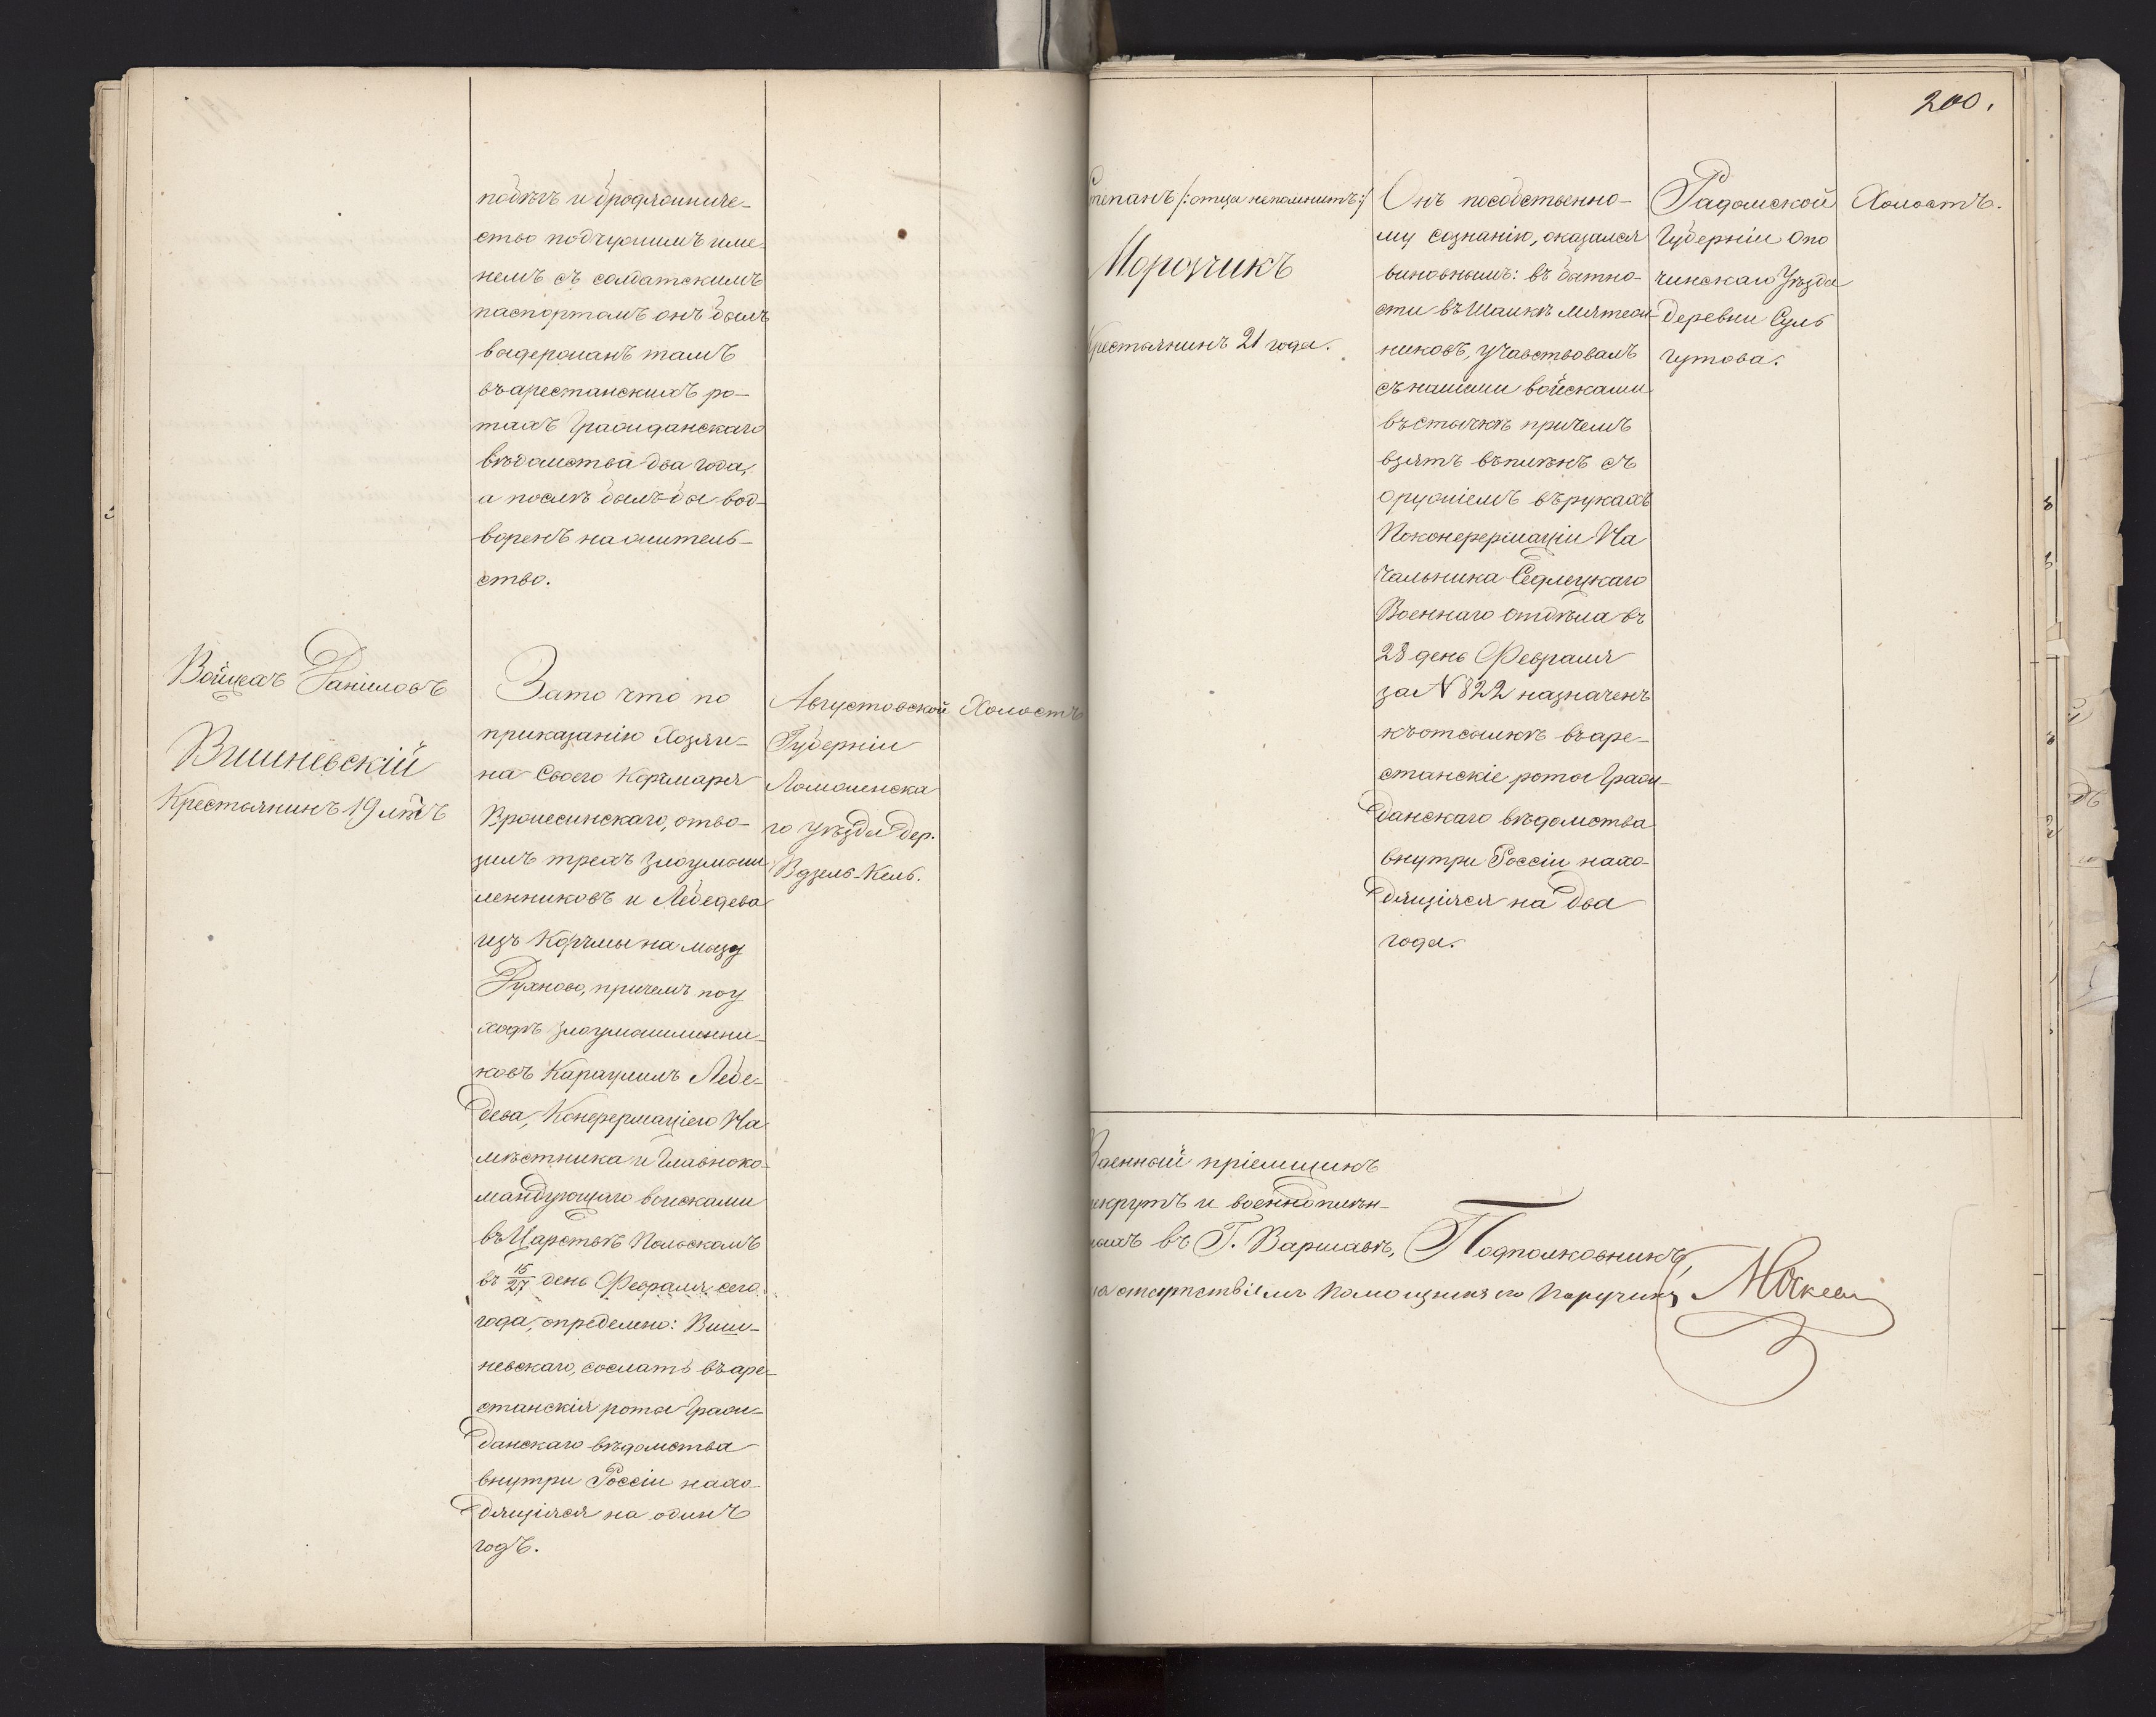 побѣгъ и бродяжниче-
ство подчужимъ име-
немъ съ солдатскимъ
паспортомъ онъ былъ
выдержанъ тамъ
въ арестанскихъ ро-
тахъ Гражданскаго
вѣдомства два года,
а послѣ былъ-бы вод-
воренъ на житель-
ство.
Войцехъ Даниловъ
Вишневскій
Крестьянинъ 19 лѣтъ
Зато что по
приказанію Хозяи-
на Своего Корчмаря
отво-
зилъ трехъ злоумыш
ленниковъ и Лебедева
изъ Корчмы на мызу
Духново, причемъ по у
ходѣ злоумышленни-
ковъ Караулилъ Лебе-
дева, Конфермаціею На
мѣстника и Главноко-
мандующаго войсками
въ Царствѣ Польскомъ
въ 15/27 день Февраля сего
года, определено: Виш-
невскаго, сослать въ аре-
станскія роты Граж-
данскаго вѣдомства
внутри Россіи нахо-
дящіяся на одинъ
годъ.
Августовской
Губерніи
Ломженска
го уѣзда дер.
Вдзель-Кель.
Холостъ
200.
Степанъ /:отца непомнитъ:/
Морозчикъ
Крестьянинъ 21 года.
Онъ пособственно-
му сознанію, оказался
виновнымъ: въ бытно-
сти въ Шайкѣ мятеж-
никовъ, участвовалъ
съ нашими войсками
въ стычкѣ причемъ
взятъ въ плѣнъ съ
оружіемъ въ рукахъ
Поконфермаціи На
чальника Седлецкаго
Военнаго отдѣла въ
28 день Февраля
за № 822 назначенъ
къ отсылкѣ въ аре-
станскіе роты Граж-
данскаго вѣдомства
внутри Россіи нахо-
дящіяся на два
года.
Радомской
Губерніи Опо
чинскаго Уѣзда
деревни Суль
гутова.
Холостъ.
Военный пріемщикъ
рекрутъ и военноплѣн-
ныхъ въ Г. Варшавѣ, Подполковникъ
за отсутствіемъ помощникъ его Поручикъ